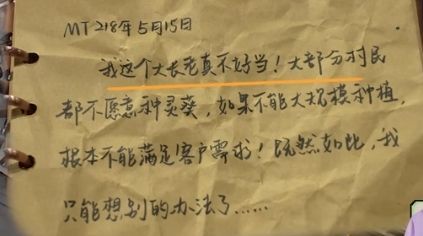 MT218年5月15日
我这个大长老真不好当！大部分村民
都不愿意种灵葵，如果不能大规模种植，
根本不能满足客户需求！既然如此，我
只能想别的办法了……